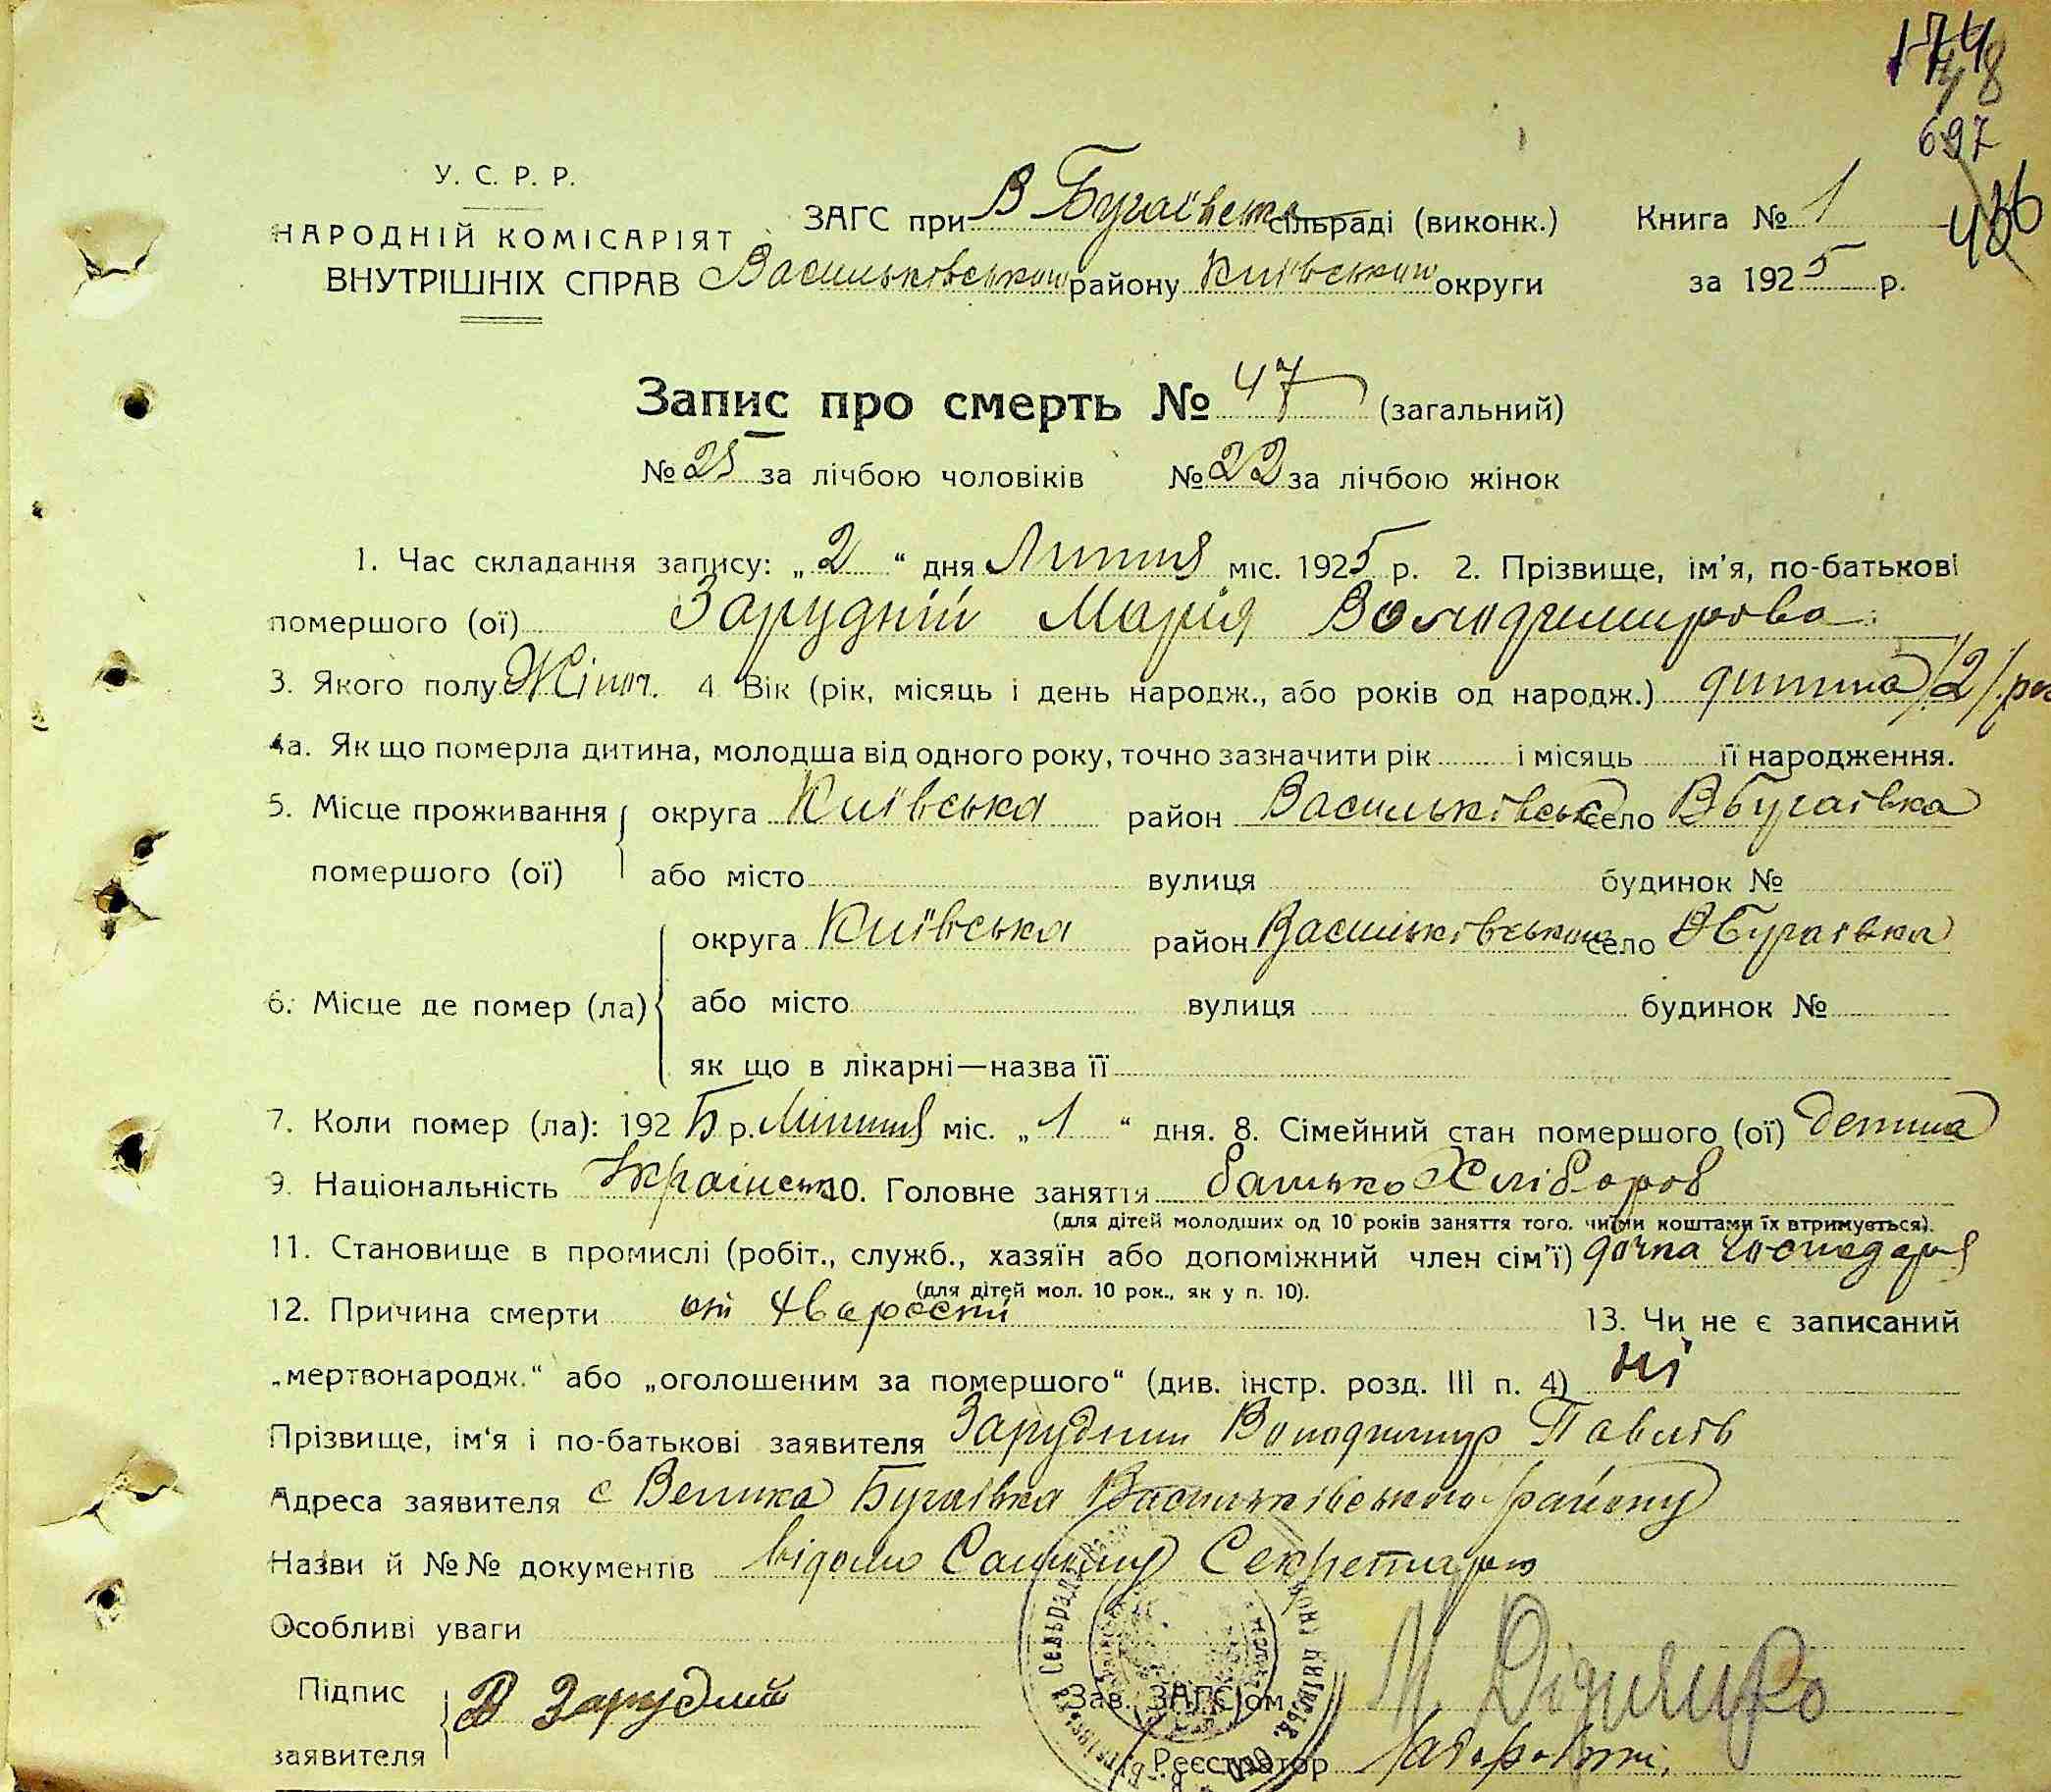 174
48
697
436
У. С. Р. Р.
НАРОДНІЙ КОМІСАРІЯТ
ВНУТРІШНІХ СПРАВ
ЗАГС при В Бугаївська сільраді (виконк.) Книга № 1
Васильківського району Київського округи за 1925 р.
Запис про смерть № 47 (загальний)
№ 25 за лічбою чоловіків № 22 за лічбою жінок
1. Час складання запису: „2“ дня Липня міс. 1925 р. 2. Прізвище, ім'я, по-батькові
помершого (ої) Зарудній Марія Володимирова
3. Якого полу Жіноч. 4 Вік (рік, місяць і день народж., або років од народж.) дитина /2/ рок
4а. Як що померла дитина, молодша від одного року, точно зазначити рік і місяць її народження.
5. Місце проживання округа Київська район Васильківськ село В Бугаївка
помершого (ої) або місто вулиця будинок №
округа Київська район Васильківського село В Бугаївка
6. Місце де помер (ла) або місто вулиця будинок №
як що в лікарні—назва її
7. Коли помер (ла): 1925 р. Липня міс. „1“ дня. 8. Сімейний стан помершого (ої) детина
9. Національність Українськ 10. Головне заняття батько Хлібороб
(для дітей молодших од 10 років заняття того, чиїми коштами їх втримується).
11. Становище в промислі (робіт., служб., хазяїн або допоміжний член сім'ї) дочка господаря
(для дітей мол. 10 рок., як у п. 10).
12. Причина смерти от 13. Чи не є записаний
„мертвонародж.“ або „оголошеним за помершого“ (див. інстр. розд. III п. 4) ні
Прізвище, ім'я і по-батькові заявителя Зарудний Володимир Павлів
Адреса заявителя с Велика Бугаївка Васильківського району
Назви й №№ документів відомо Самому Секретарю
Особливі уваги
Підпис
заявителя В Зарудний
Зав. ЗАГС'ом
Реєстратор